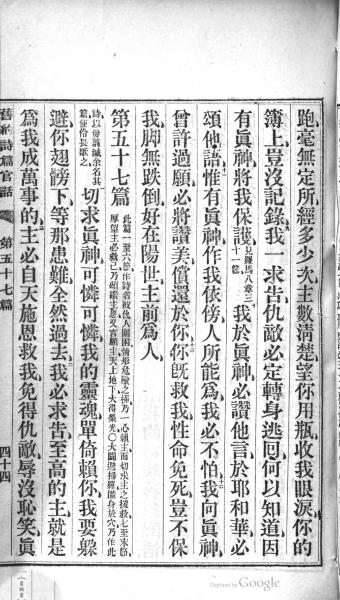 跑毫無定所經多少次主數清楚望你用瓶收我眼淚你的
簿上豈沒記錄我一求告仇敵必定轉身逃囘何以知道因
有眞神將我保護見羅馬八章三十一節我於眞神必讚他言於耶和華必
頌他語惟有眞神作我依傍人所能爲我必不怕我向眞神
曾許過願必將讚美償還於你你旣救我性命免死豈不保
我脚無跌倒好在陽世主前爲人
第五十七篇
此篇一至六節作詩者被仇人圍困情形危險之極乃一心賴主而切求主之援救七至末節
厚望主必救己乃頌讚主恩又言願主天上地下大得榮光〇大闢避掃羅匿身於穴乃作此
詩以毋翦滅爲名其
篇使伶長歌之
切求眞神可憐可憐我的靈魂單倚賴你我要躱
避你翅膀下等那患難全然過去我必求告至高的主就是
爲我成萬事的主必自天施恩救我免得仇敵辱沒恥笑眞
舊約詩篇官話
第五十七篇
四十四
Digitized by Google